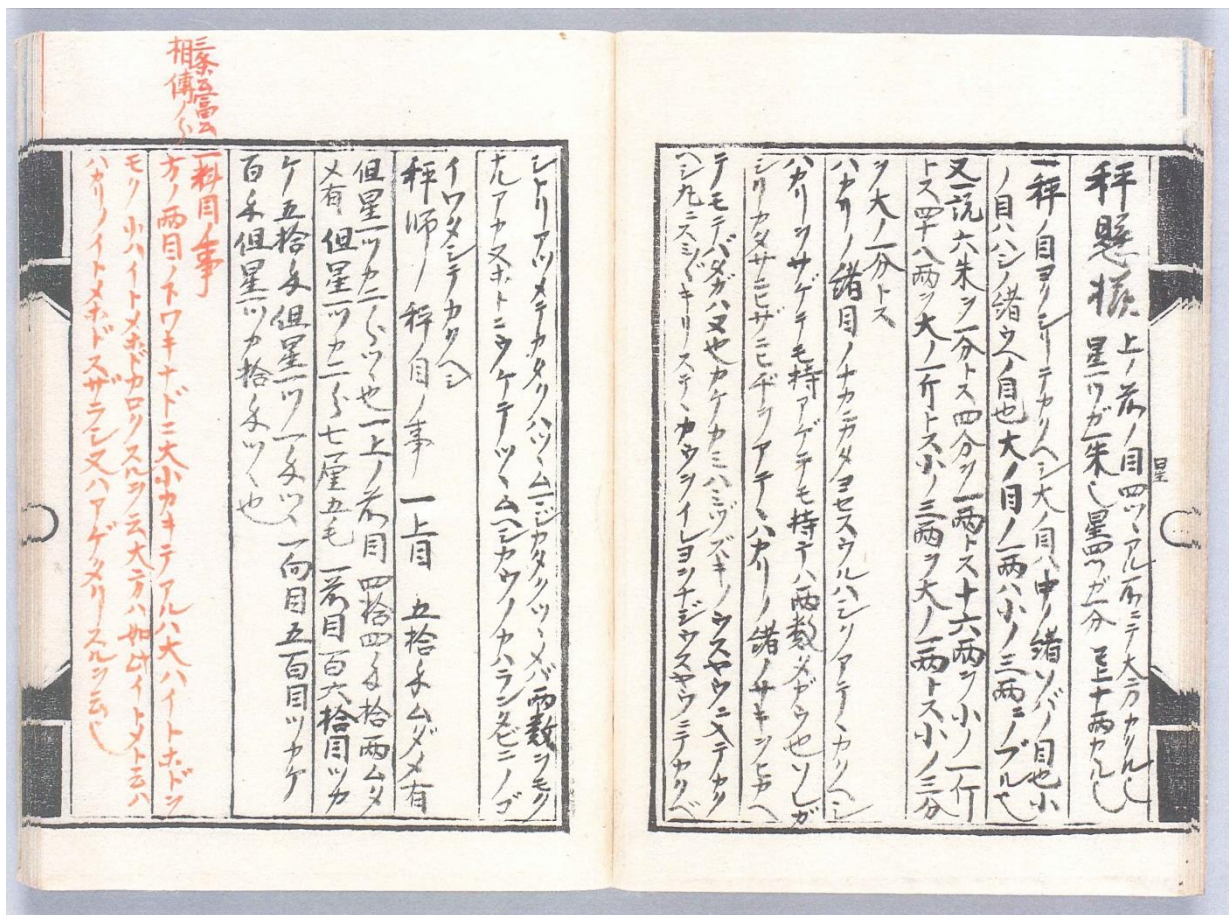 秤懸様 上ノ前ノ目四ツヽアル所ニテ大方カクルし
星一ツガ一朱し星四ツガ一分 十両カルし
星
一秤ノ目ヨクシリテカクヘシ大ノ目ハ中ノ緒ソバノ目也小
ノ目ハハシノ緒ウヘノ目也大ノ目ノ一両ハ小ノ三両ニノブル也
又一説六朱ヲ一分トス四分ヲ一両トス十六両ヲ小ノ一斤
トス四十八両ヲ大ノ一斤トス小ノ三両ヲ大ノ一両トス小ノ三分
ヲ大ノ一分トス
ハカリノ緒目ノナカニカタヨセスウルハシクアテヽカクヘシ
ハカリヲサゲテモ持アゲテモ持テハ両数タガウ也ソレガ
シリカタサニヒザニヒヂヲアテヽハカリノ緒ノサキヲヒカヘ
テモテバタガハヌ也カケカミハミヅズキノウスヤウニ入テカク
ヘシ九ニスンヾキリステヽカウヲイレヨヲナジウスヤウニテカクベ
シトリアツメテカタクハツヽムニジカタクツヽメバ両数ヲモク
ナルアヤスホトニウケテツヽムヘシカウノカハランタビニノゴ
イワタシテカクヘシ
秤師ノ秤目ノ事 一上目 五拾匁ムダメ有
但星一ツカ二分ツヽ也一上ノ前目四拾四匁拾両ムダ
メ有 但星一ツカ二分七厘五毛 一前目百六拾目ツカ
ケ五拾匁但星一ツ一匁ツヽ一向目五百目ツカケ
百匁但星一ツカ拾匁ツヽ也
相傳ノ分
一料目ノ事
方ノ両目ノ下ワキナドニ大小カキテアルハ大ハイトホドヲ
モク小ハイトメホドカロクスルヲ云大方ハ如此イトメト云ハ
ハカリノイトメホドスザラし又ハアゲメリスルヲ云し